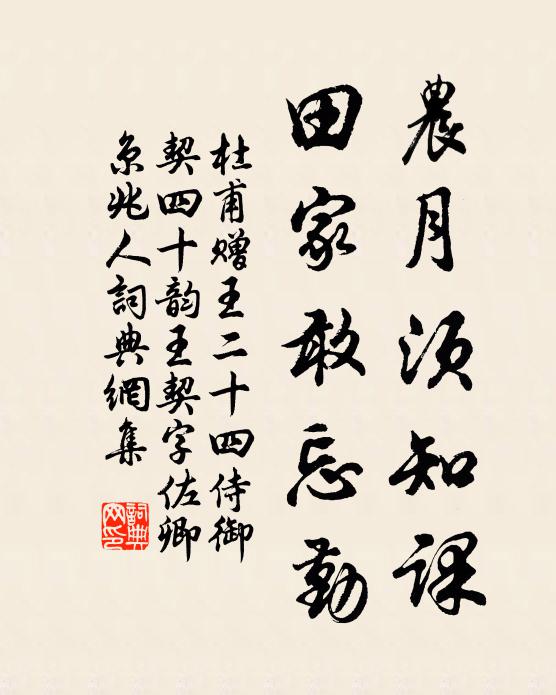 農月須知课
田家敢忘勤
杜甫赠王二十四侍御
契四十韵王契字佐卿
京兆人詞典網集
詞典
网印